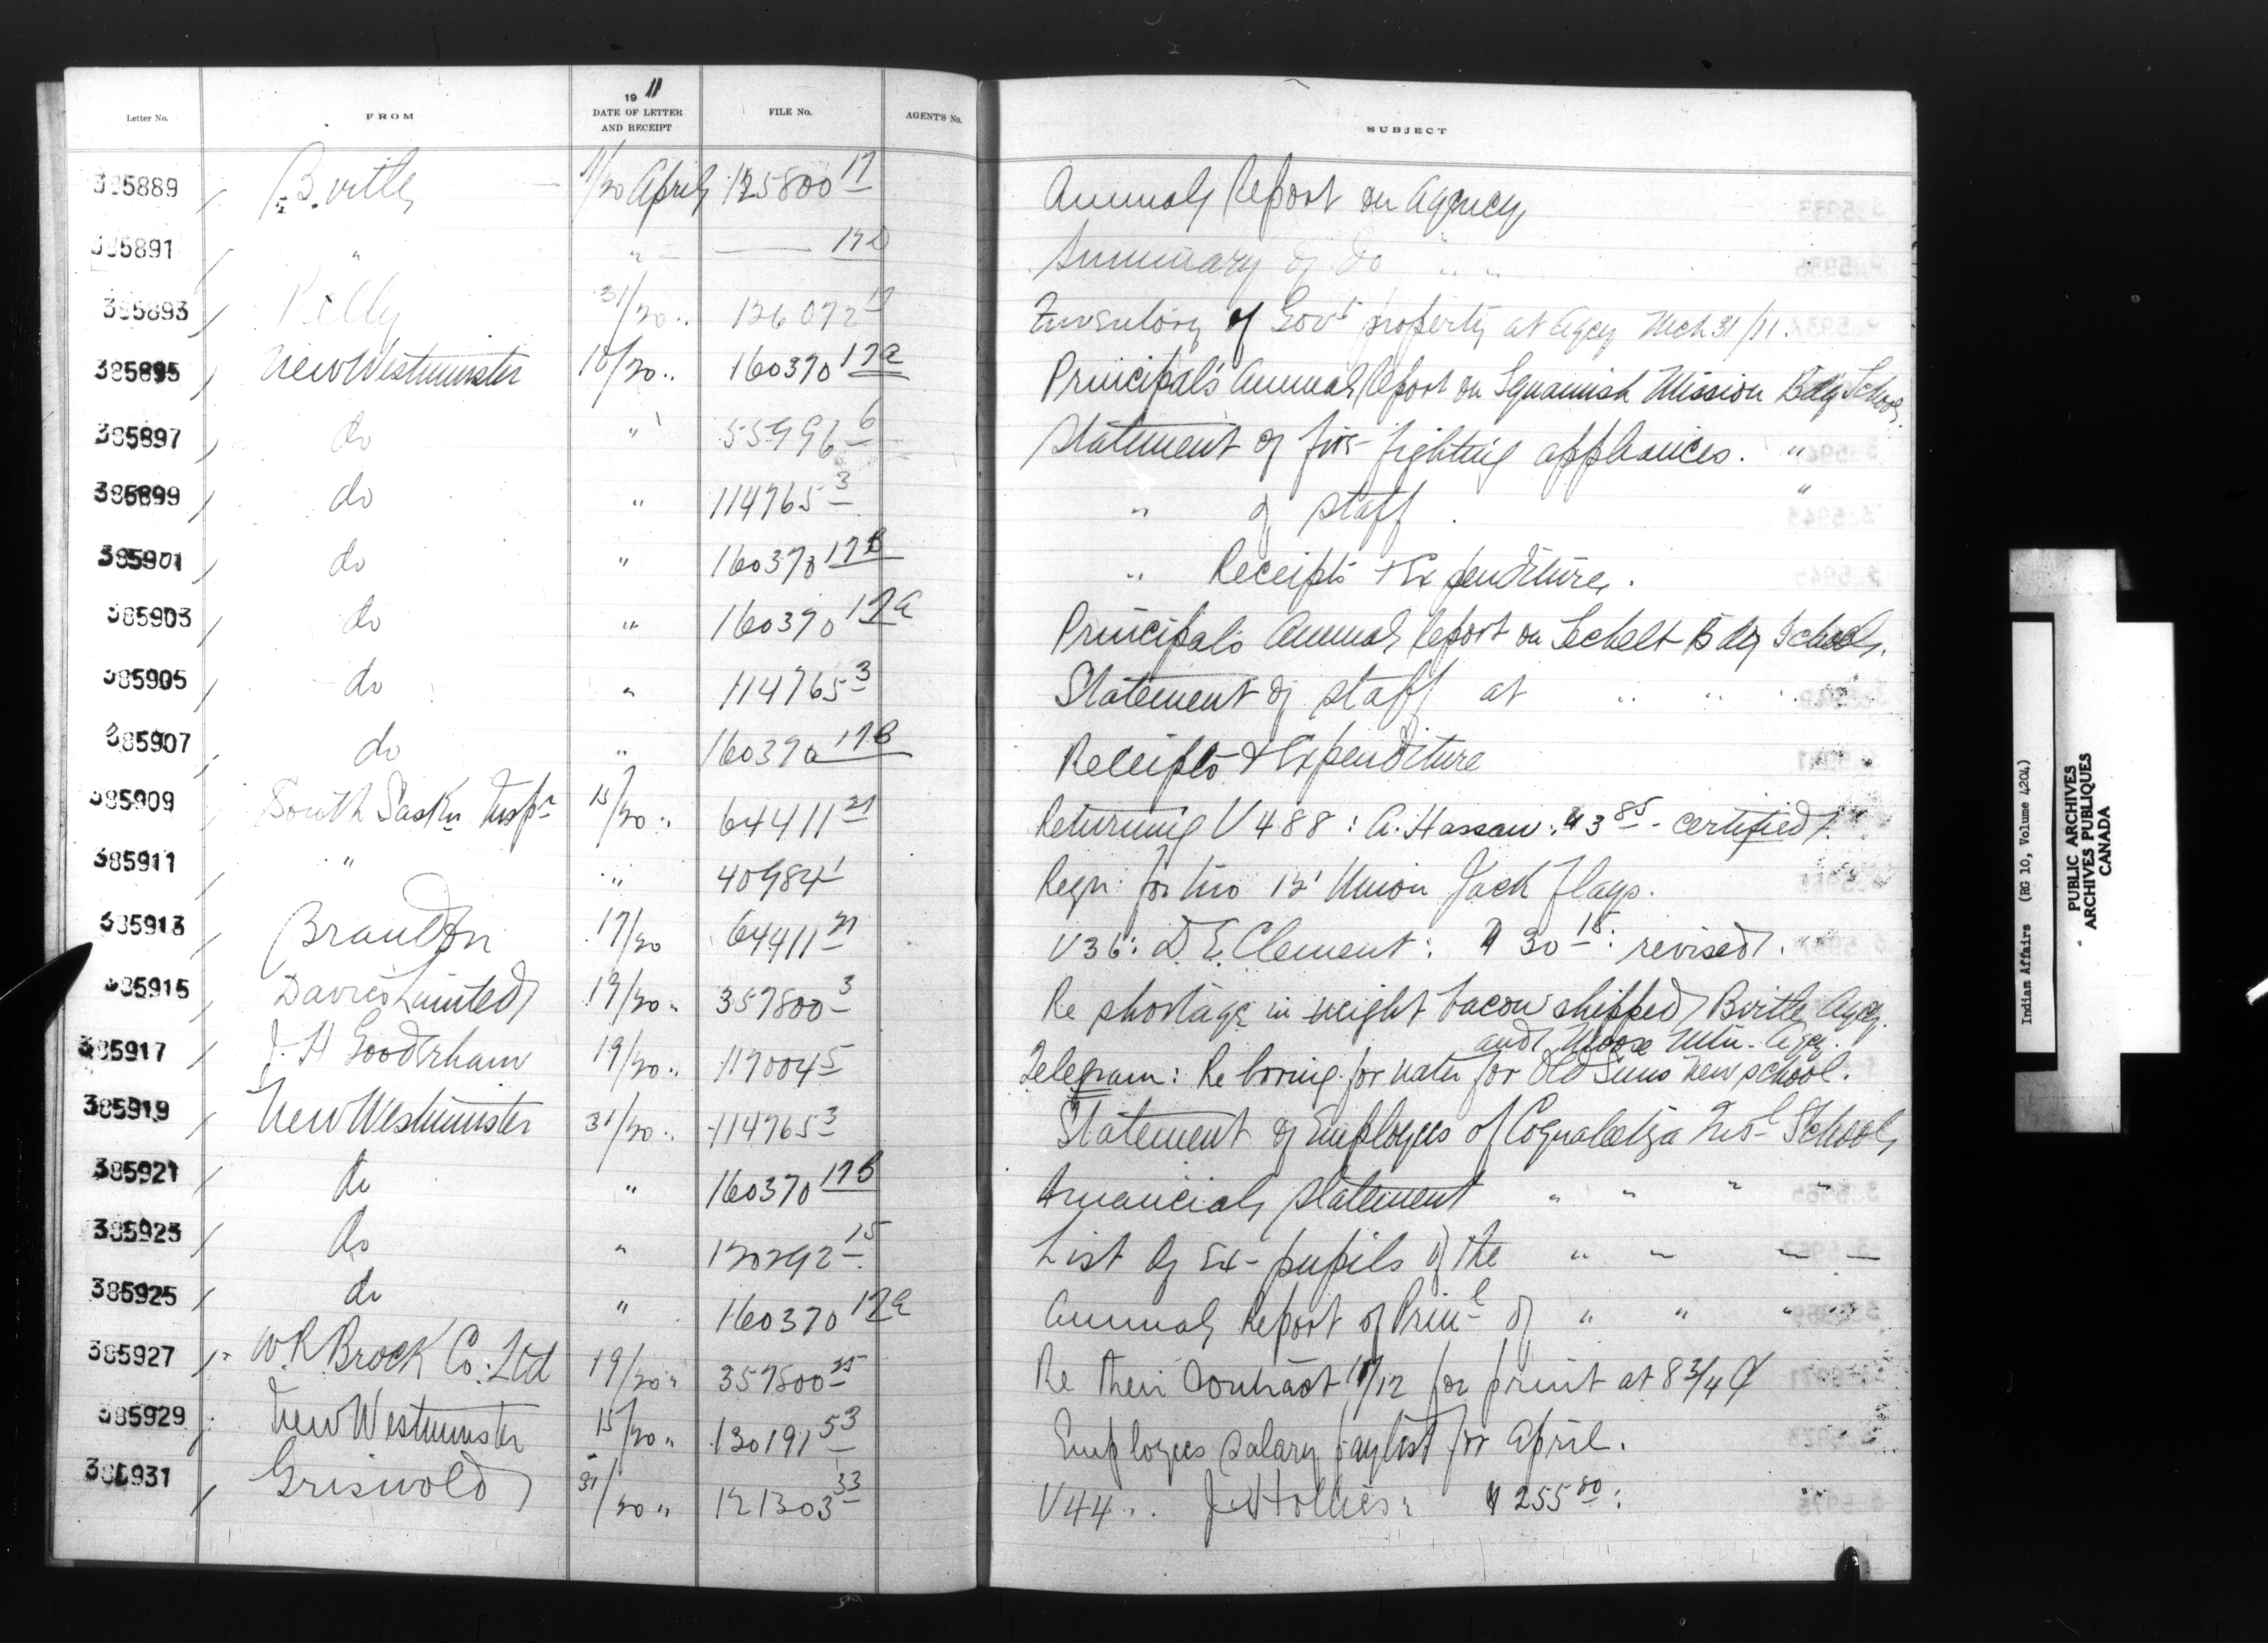 Letter No. FROM 19 11 DATE OF LETTER AND RECEIPT FILE No. AGENT'S No. SUBJECT
385889 Birtle 11/20 April 125800 17 Annual Report on Agency
385891 " " 17D Summary of do " "
385893 Pelly 31/20 " 126072 17 Inventory of Govt property at Agcy Mch 31/11.
385895 New Westminster 10/20 " 160370 17a Principal's Annual Report on Squamish Mission Bdg School
385897 do " 55996 6 Statement of fire-fighting appliances. "
385899 do " 114765 3 " of staff. "
385901 do " 160370 17B " Receipts & Expenditure.
385903 do " 160370 17a Principal's Annual Report on Sechelt Bdg School.
385905 do " 114765 3 Statement of staff at " " "
385907 do " 160370 17B Receipts & Expenditure
385909 South Saskn Inspr 15/20 " 64411 21 Returning V488: A. Hassan: $3 85 - certified.
385911 " " 40984 1 Reqn: for two 12' Union Jack Flags.
385913 Brandon 17/20 64411 21 V36: D. E. Clement: $30 15: revised.
385915 Davies Limited 19/20 " 357800 3 Re shortage in weight bacon shipped Birtle Agcy.
and Moose Mtn. Agcy.
385917 J. H Gooderham 19/20 " 117004 5 Telegram: Re boring for water for Old Suns new school.
385919 New Westminster 31/20 " 114765 3 Statement of Employees of Coqualeetza Instl School
385921 do " 160370 17B Financial statement " " " "
385923 do " 120292 15 List of Ex-pupils of the " " " "
385925 do " 160370 17a Annual Report of Prinl of " " "
385927 W. R Brock Co: Ltd 19/20 " 357800 25 Re their contract 11/12 for print at 8 3/4 ¢
385929 New Westminster 15/20 " 130191 53 Employees salary paylist for April.
385931 Griswold 31/20 " 121303 33 V44 . J. Hollies: $255 80:
Indian Affairs (RG 10, Volume 4204)
PUBLIC ARCHIVES
ARCHIVES PUBLIQUES
CANADA